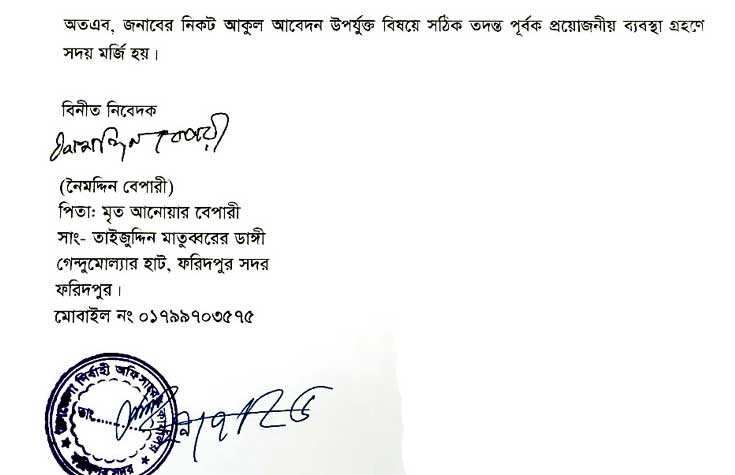 অতএব, জনাবের নিকট আকুল আবেদন উপর্যুক্ত বিষয়ে সঠিক তদন্ত পূর্বক প্রয়োজনীয় ব্যবস্থা গ্রহণে
সদয় মর্জি হয়।
বিনীত নিবেদক
বেপারী
(নৈমদ্দিন বেপারী)
পিতাঃ মৃত আনোয়ার বেপারী
সাং- তাইজুদ্দিন মাতুব্বরের ডাঙ্গী
গেন্দুমোল্যার হাট, ফরিদপুর সদর
ফরিদপুর।
মোবাইল নং ০১৭৯৯৭০৩৫৭৫
উপজেলা নির্বাহী অফিসারের কার্যালয়
তাং
ফরিদপুর সদর